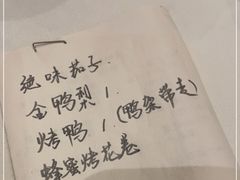 绝味茄子.
金鸭梨 1.
烤鸭 1. (鸭架带走)
蜂蜜烤花卷